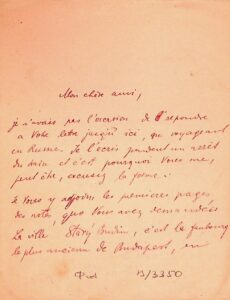 Mon chère ami,
je n'avais pas l'occasion de répondre
a Votre letre jusqu'ici, que voyageant
en Russie. Je l'écris pendent un arrêt
du train et c'est pourquoi Vous me,
peut être, excusez la forme.
Je Vous y adjoins les premieres pages
des notes, que Vous avez demandées
La ville Stary Boudin, c'est la faubourg
le plus ancienne de Budapest, en
13/3350